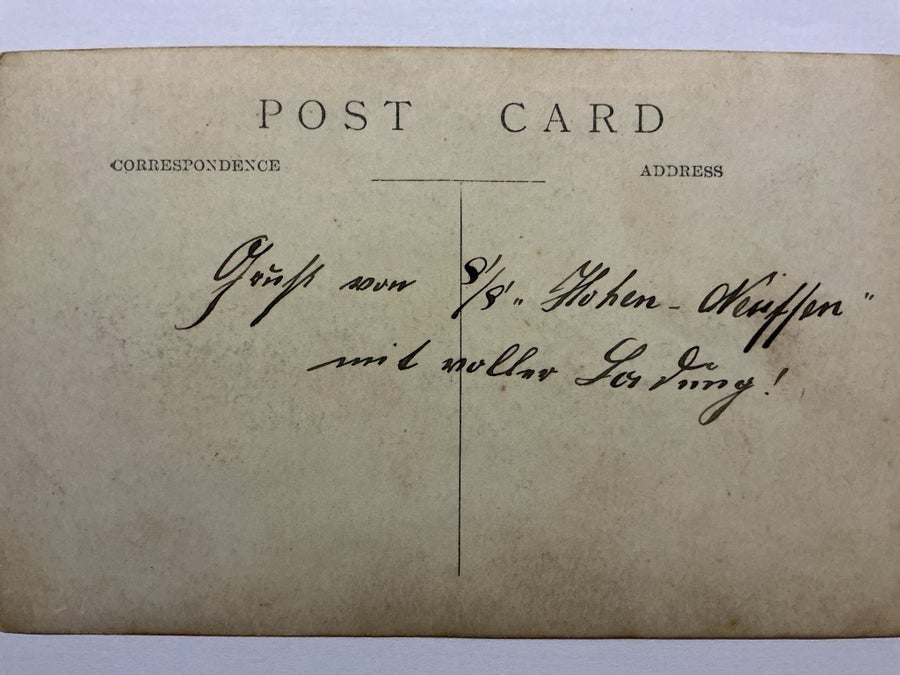 POST CARD
CORRESPONDENCE
ADDRESS
Gruß von S/S „Hohen-Neuffen"
mit voller Ladung!